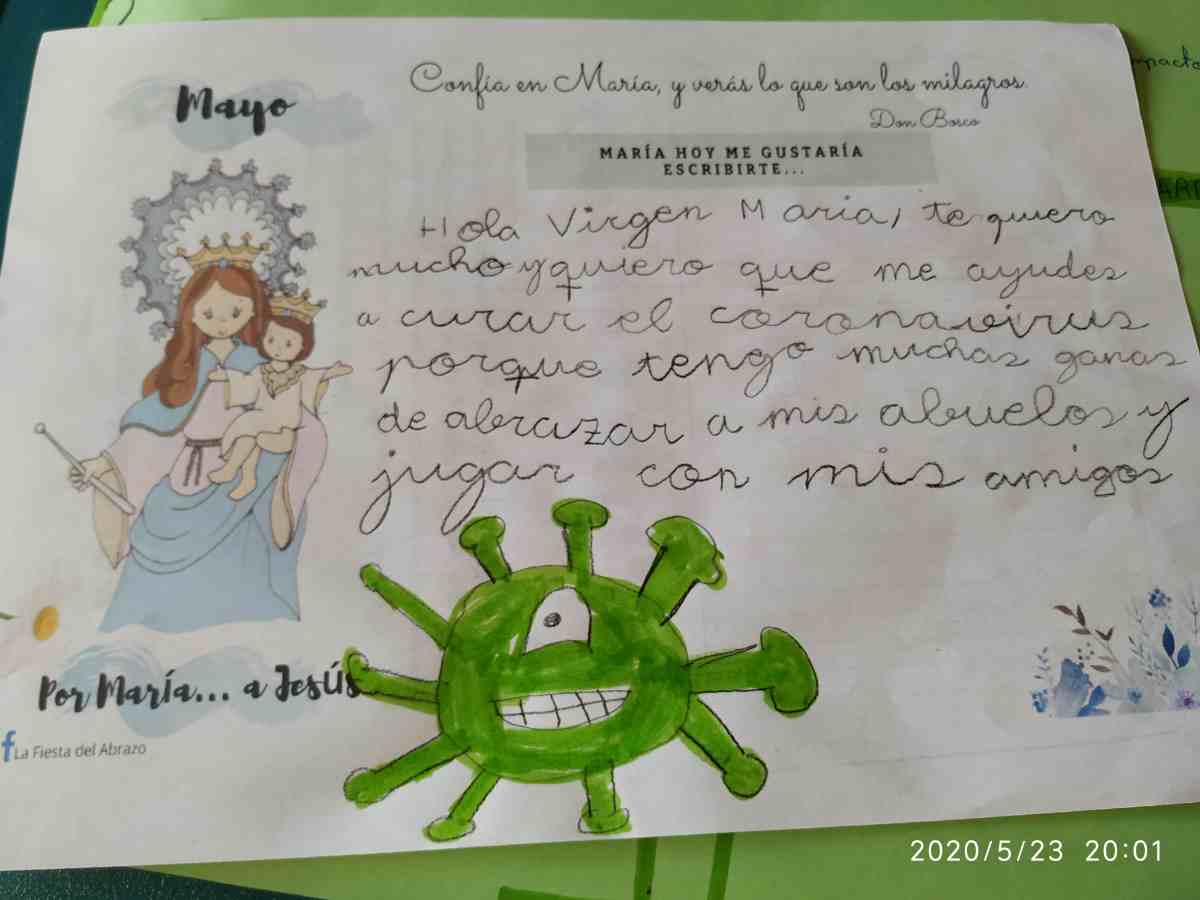 Mayo
Confía en María, y verás lo que son los milagros.
Don Bosco
MARÍA HOY ME GUSTARÍA
ESCRIBIRTE...
Hola Virgen Maria, te quiero
mucho y quiero que me ayudes
a curar el coronavirus
porque tengo muchas ganas
de abrazar a mis abuelos y
jugar con mis amigos
Por María... a Jesús
f La Fiesta del Abrazo
2020/5/23 20:01